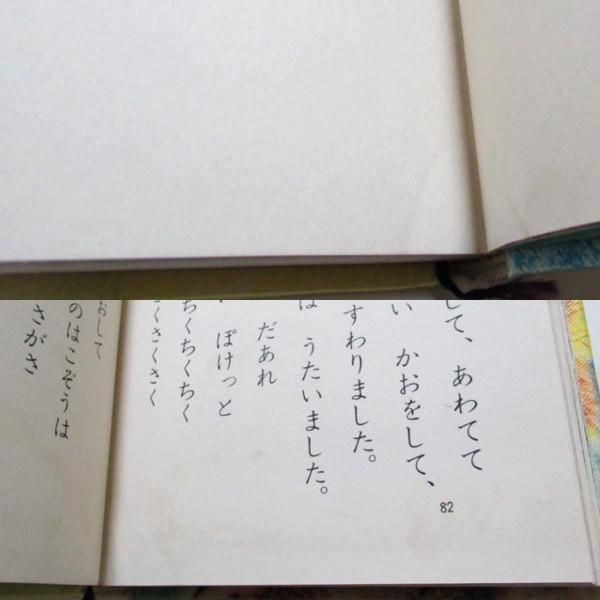 して、あわてて
い かおをして、
すわりました。
は うたいました。
だあれ
ぽけっと
ちくちくちく
くさくさく
82
おして
のはこぞうは
さがさ